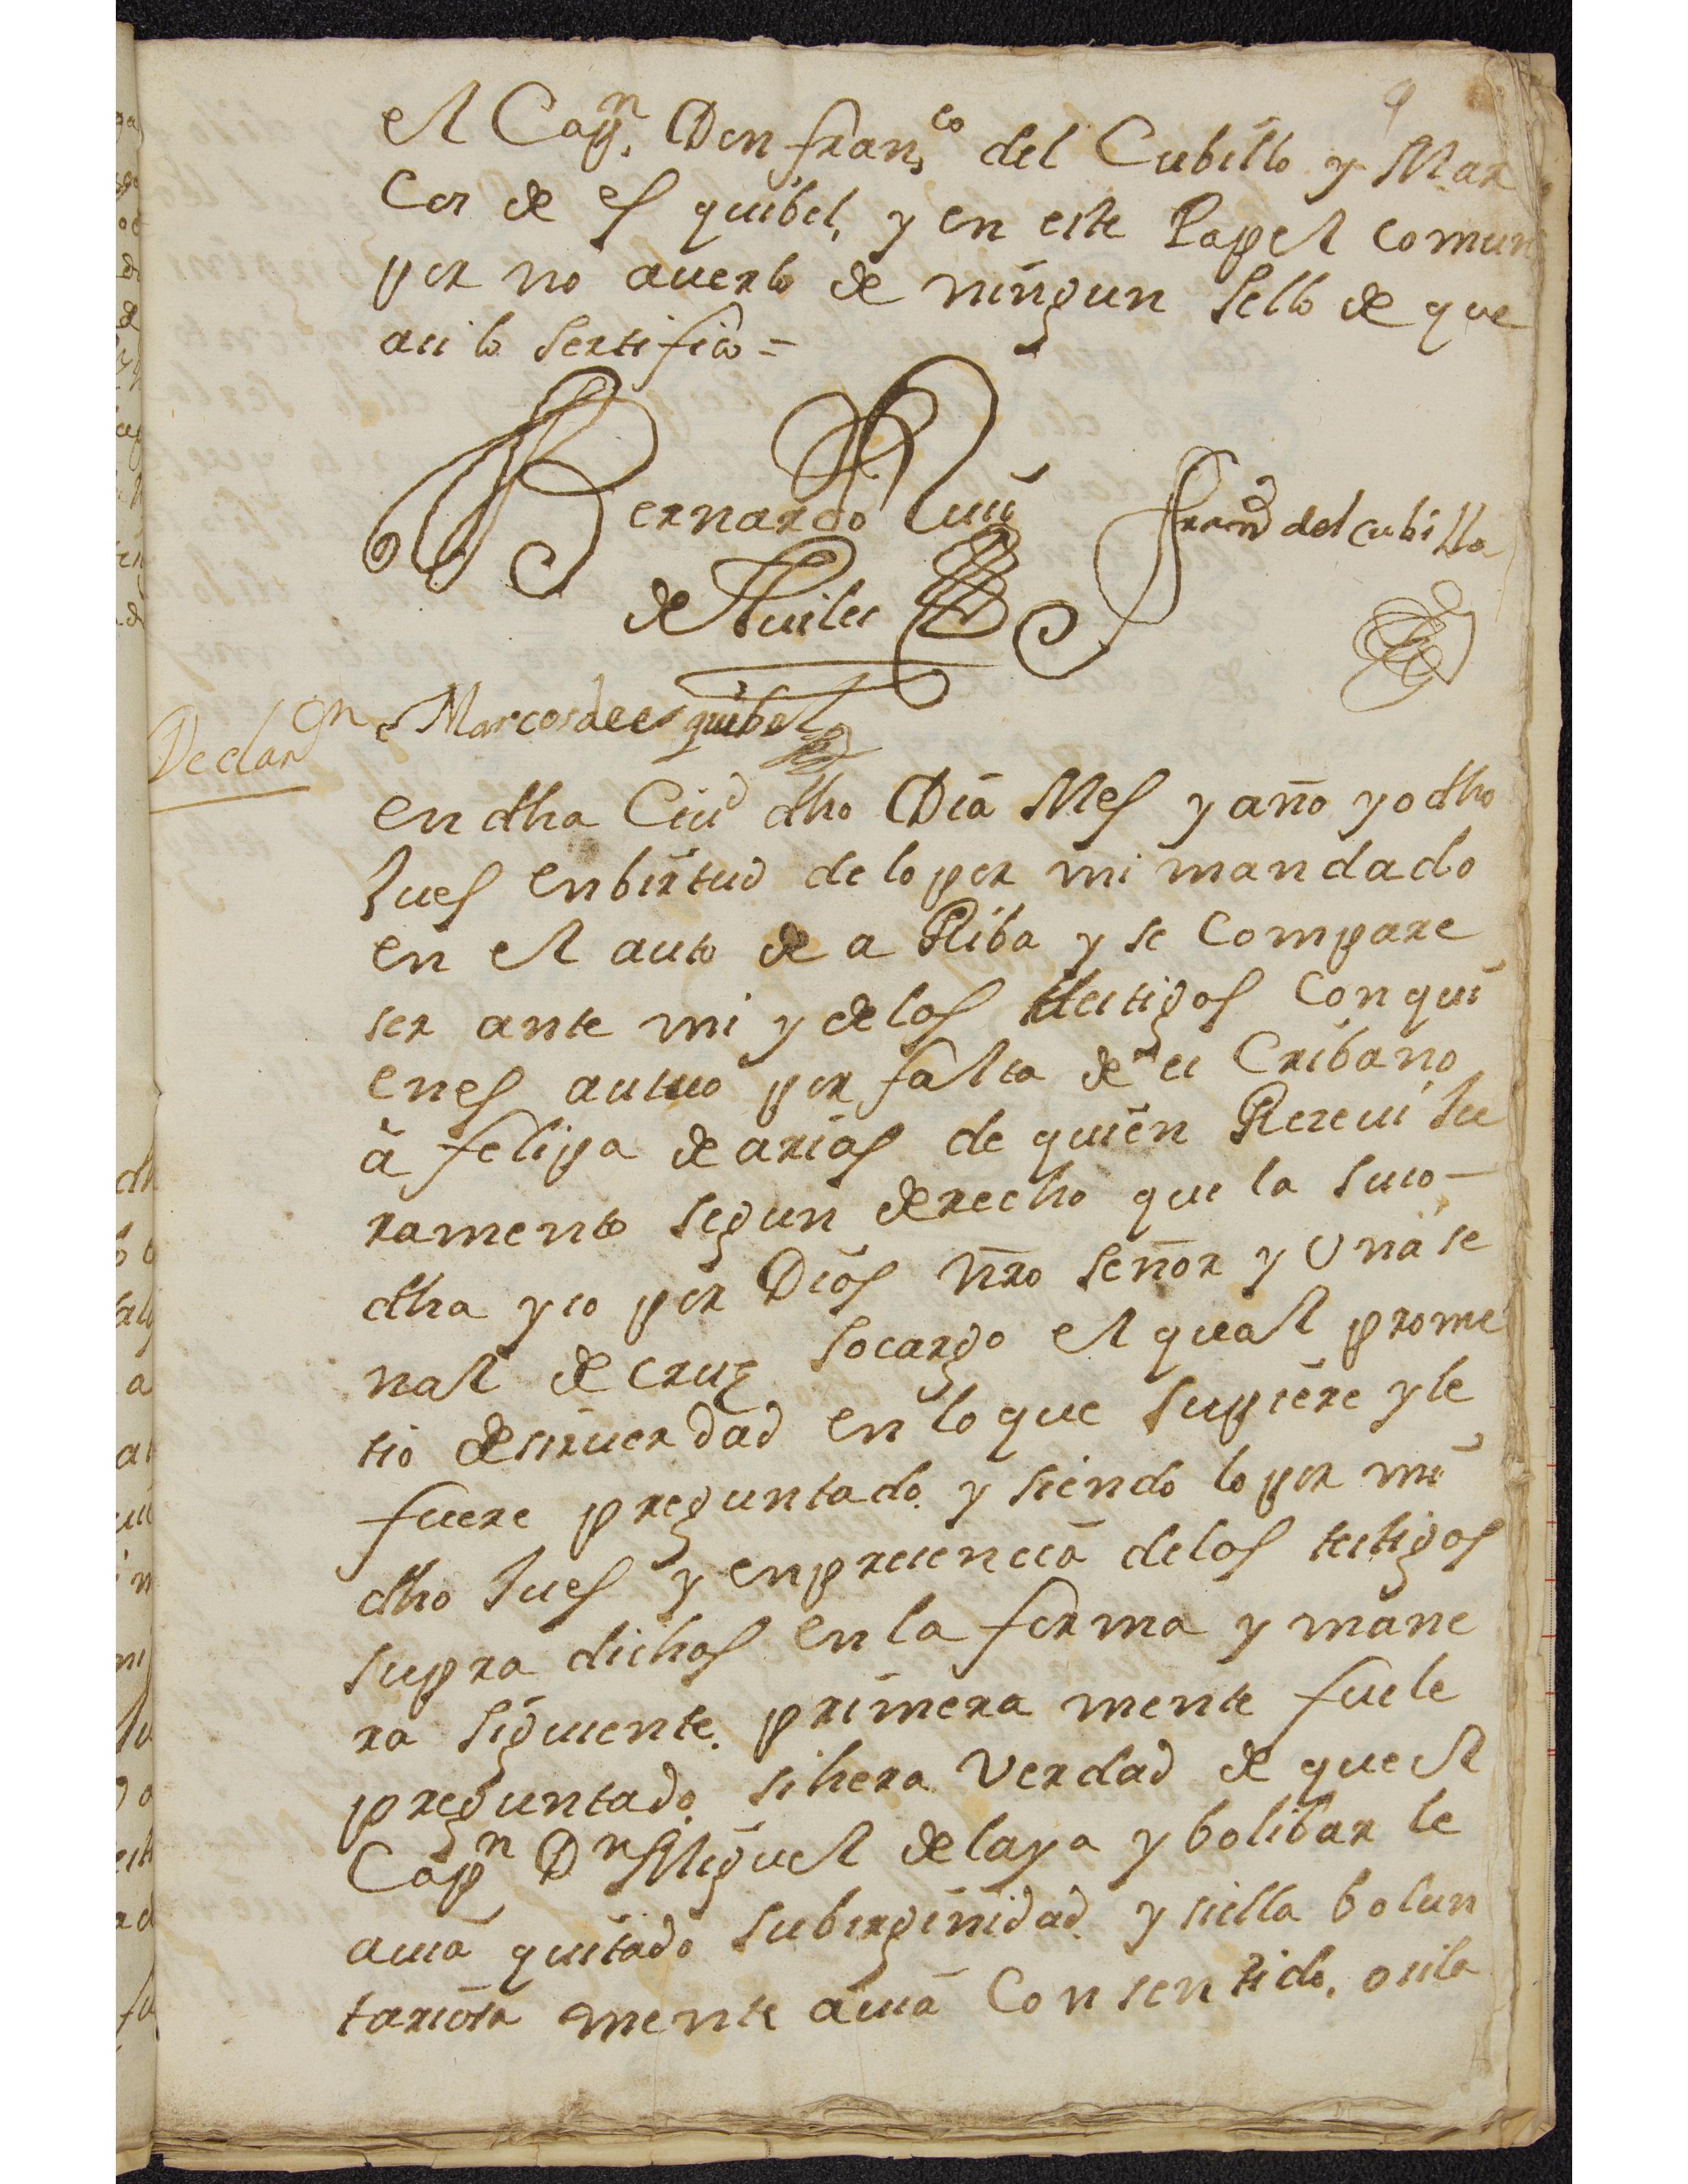 9
el Capn. Don franco del Cubillo y Mar
Cos de es quibel, y en este Papel comun
por no auerlo de ningun sello de que
asi lo sertifico =
Bernardo Ruis franco del cubillo
de Auiles
Marcos de es quibel
Declaron
en dha Ciud dho Dia Mes y año yo dho
Jues en birtud de lo por mi mandado
en el auto de a Riba y se compare
ser ante mi y de los testigos con qui
enes autuo por falta de es Cribano
à felipa de arias de quien Reseui Ju
ramento segun derecho que la suso-
dha yso por Dios nro señor y Una se
nal de cruz socargo el qual prome
tio desir uerdad en lo que supiere y le
fuere preguntado. y siendo lo por mi
dho Jues y en presencia de los testigos
supra dichos en la forma y mane
ra siguiente. primera mente fuele
preguntado. si hera Verdad de que el
Capn Dn Miguel de laya y bolibar le
auia quitado su birginidad. y si ella bolun
tariosa mente auia Consentido. o si la